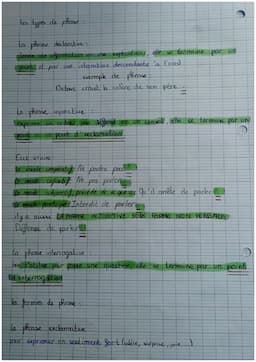 les types de phrase
la phrase déclarative :
donne une information ou une explication, elle se termine par un
point et par une intonation descendante à l'oral
exemple de phrase
Octave craint la colère de son père.
la phrase injonctive
exprime un ordre, un ou un conseil elle se termine par un
point ou point d'exclamation
le mode impératif: Ne parlez pas
le mode infinitif: Ne pas parler
le mode subjonctif, précédé de que Qu'il arrête de parler
Interdit de parler
il y a aussi LA PHRASE INJONCTIVE SOUS FORME NON VERBALE
Défense de parler
la phrase interrogative
pose une question elle se termine par un point
d'interrogation
les formes de phrase
la phrase exclamative
pour exprimer un sentiment fort (colère, surprise, joie...)